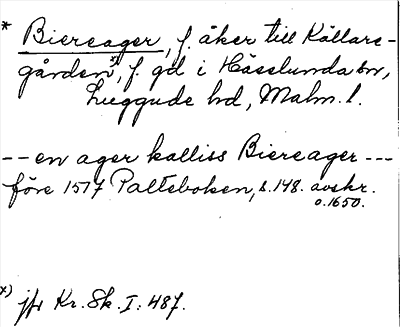 * Biereager, f. åker till Källare-
gården*), f. gd i Hässlunda sn,
Luggude hd, Malm. l.
-- en ager kalliss Biereager ---
före 1517 Palteboken, s. 148. avskr.
o. 1650.
x) jfr Kr. Sk. I: 487.